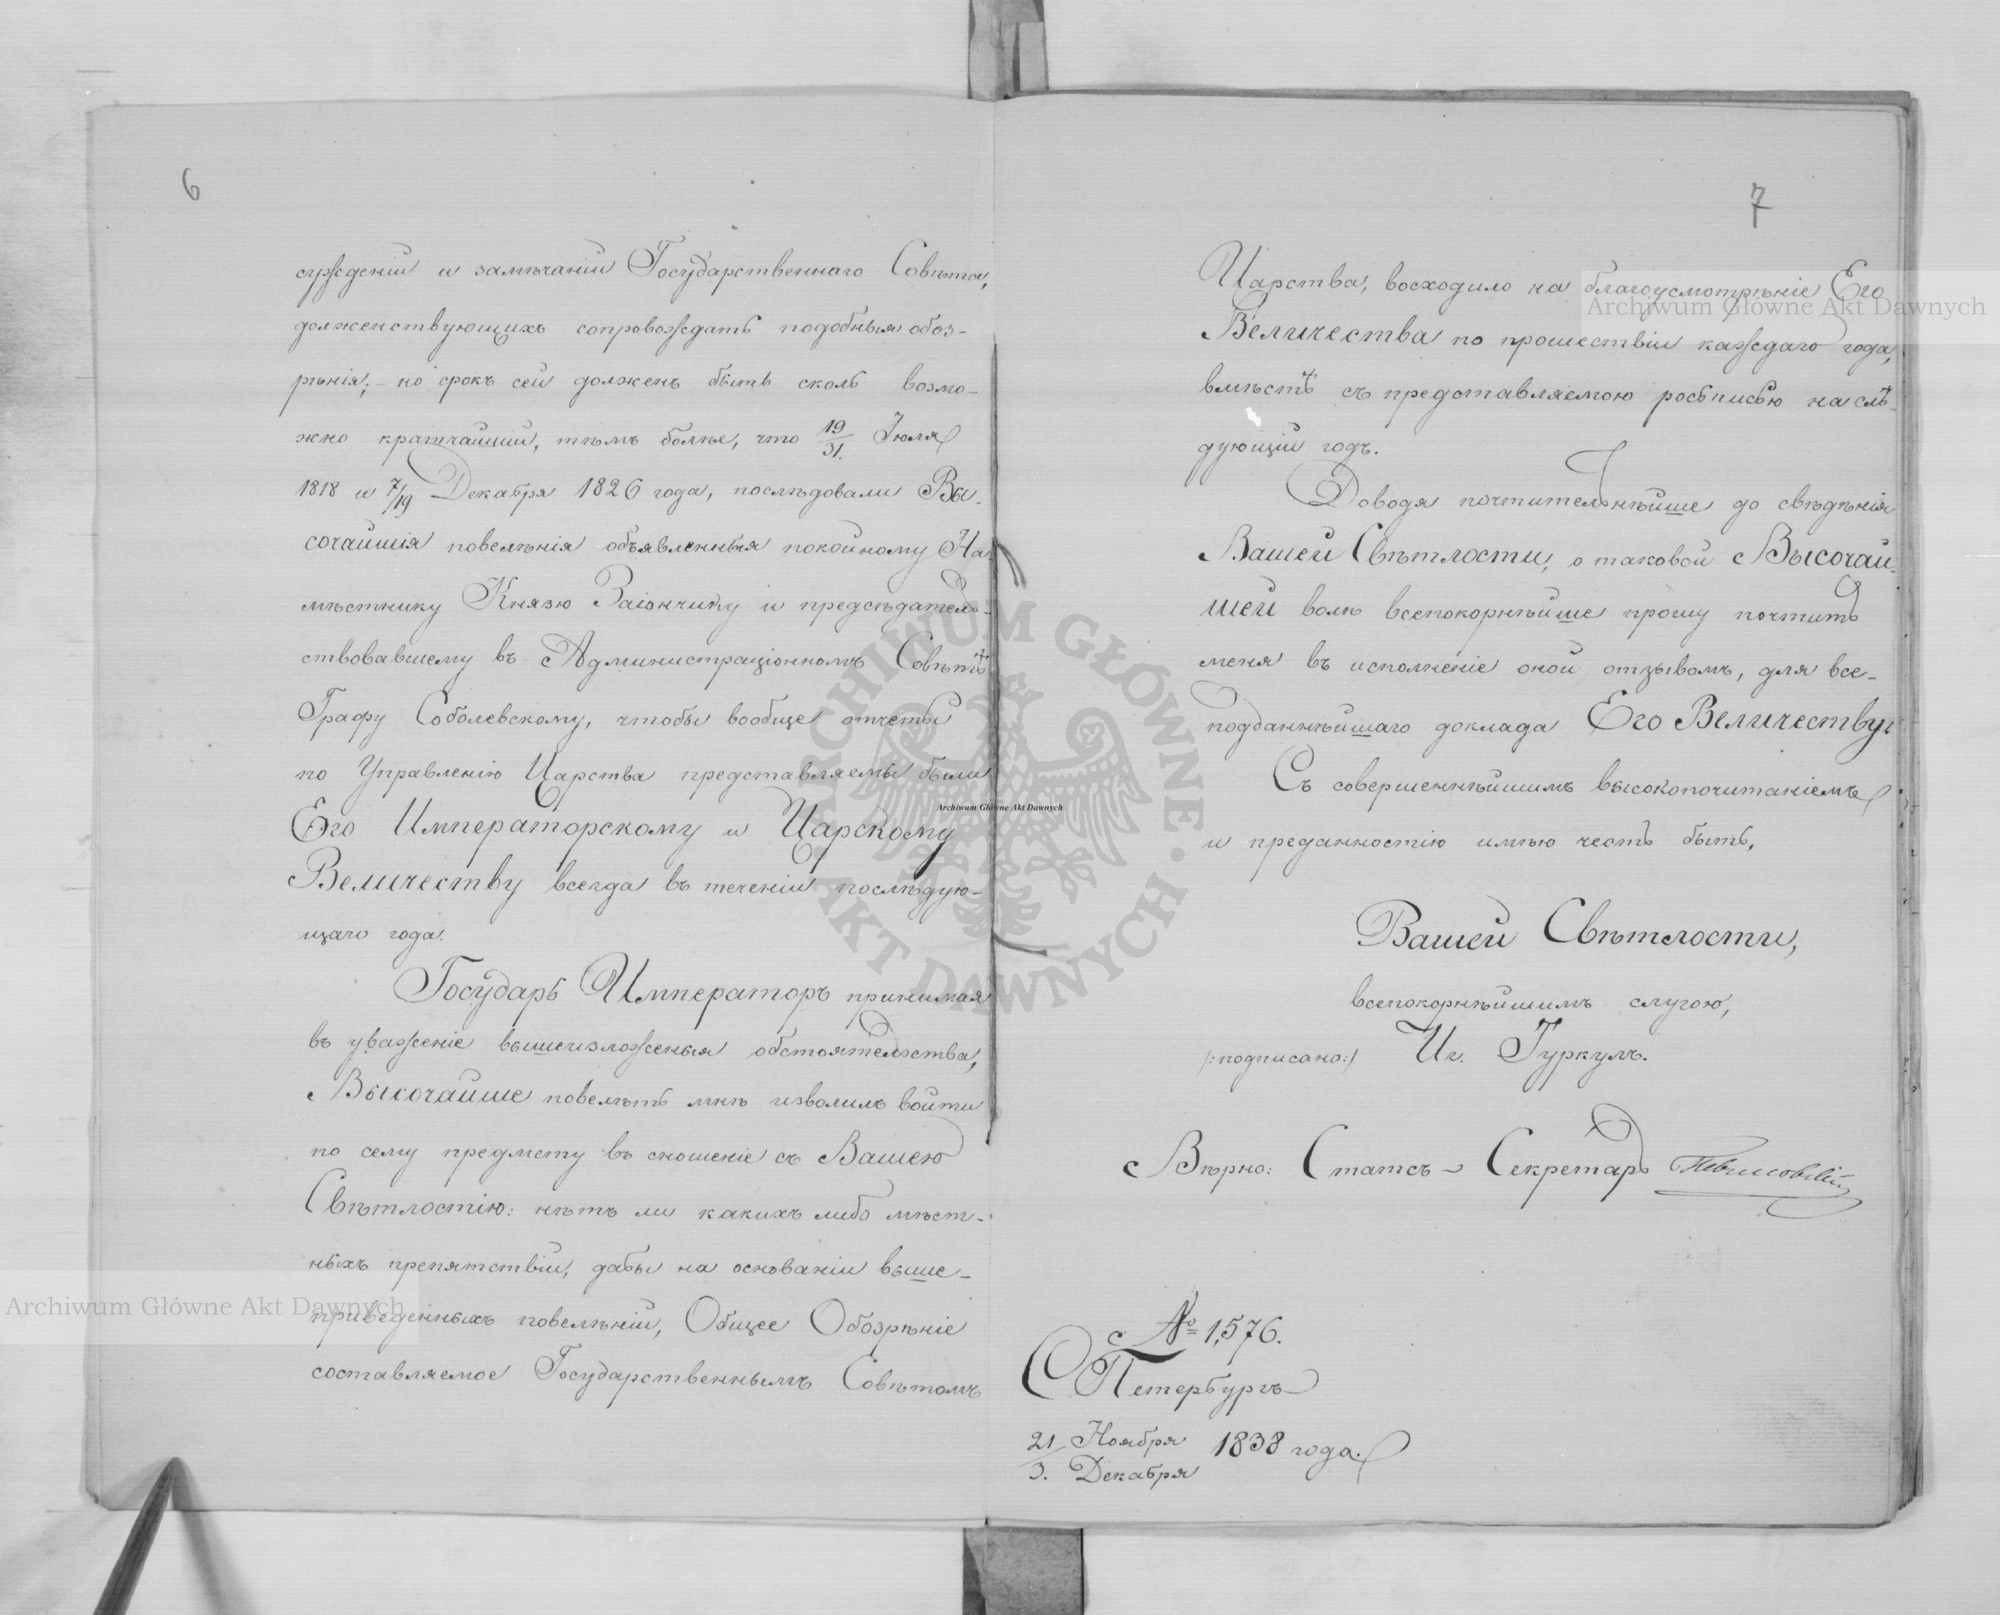 6
сужденій и замѣчаній Государственнаго Совѣта,
долженствующихъ сопровождать подобныя обоз-
рѣнія; – но срокъ сей долженъ быть сколь возмо-
жно кратчайшій, тѣмъ болѣе, что 19/31. Іюля
1818 и 7/19 Декабря 1826 года, послѣдовали Вы-
сочайшія повелѣнія объявленныя покойному На-
мѣстнику Князю Заіончику и предсѣдатель-
ствовавшему въ Администраціонномъ Совѣтѣ
Графу Соболевскому, чтобы вообще отчеты
по Управленію Царства представляемы были
Его Императорскому и Царскому
Величеству всегда въ теченіи послѣдую-
щаго года.
Государь Императоръ принимая
въ уваженіе вышеизложеныя обстоятельства,
Высочайше повелѣть мнѣ изволилъ войти
по сему предмету въ сношеніе съ Вашею
Свѣтлостію: нѣтъ ли какихъ либо мѣст-
ныхъ препятствій, дабы на основаніи выше-
приведенныхъ повелѣній, Общее Обозрѣніе
составляемое Государственнымъ Совѣтомъ
7
Царства, восходило на благоусмотрѣніе Его
Величества по прошествіи каждаго года,
вмѣстѣ съ представляемою росписью на слѣ-
дующій годъ.
Доводя почтительнѣйше до свѣдѣнія
Вашей Свѣтлости, о таковой Высочай-
шей волѣ всепокорнѣйше прошу почтить
меня въ исполненіе оной отзывомъ, для все-
подданнѣйшаго доклада Его Величеству.
Съ совершеннѣйшимъ высокопочитаніемъ
и преданностію имѣю честь быть,
Вашей Свѣтлости,
всепокорнѣйшимъ слугою,
/:подписано:/ Иг. Туркулъ.
Вѣрно: Статсъ-Секретарь
№ 1,576.
СПетербургъ
21/3. Ноября Декабря 1838 года.
Archiwum Główne Akt Dawnych
Archiwum Główne Akt Dawnych
Archiwum Główne Akt Dawnych
ARCHIWUM GŁÓWNE AKT DAWNYCH